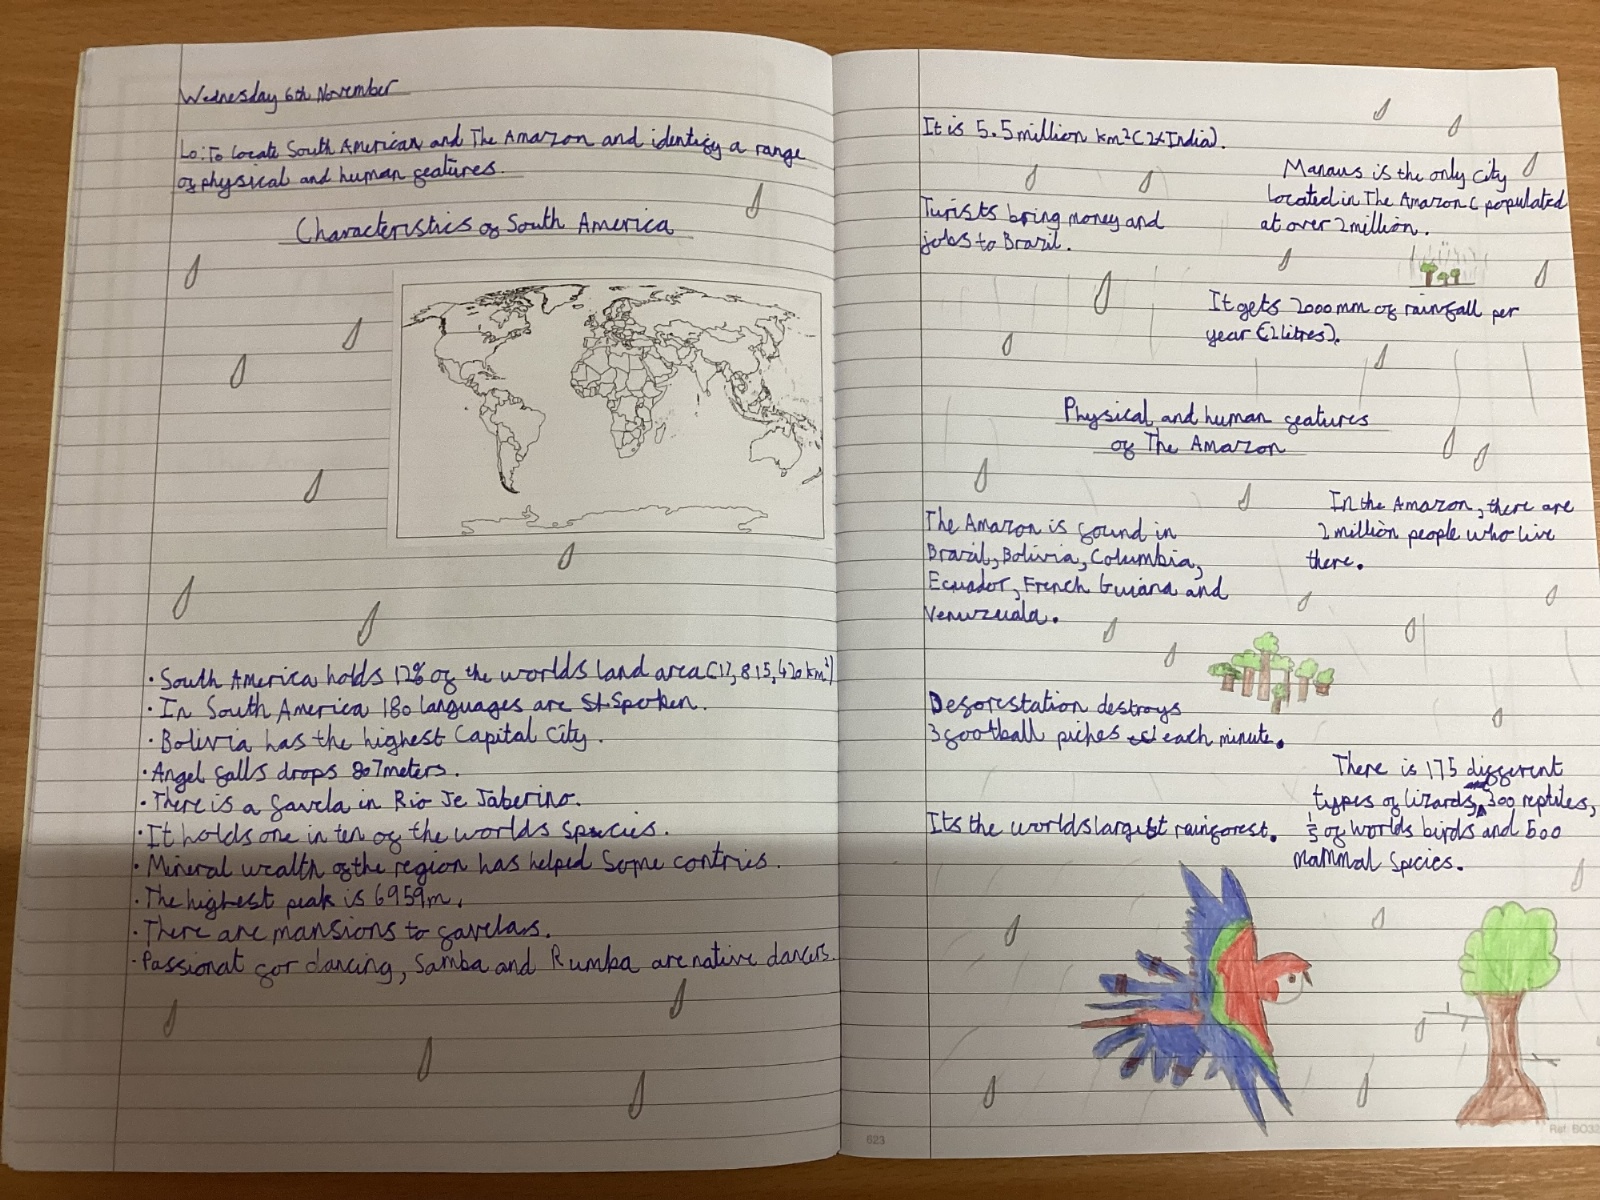 Wednesday 6th November
Lo: To locate South American and The Amazon and identify a range
of physical and human features.
Characteristics of South America
• South America holds 12% of the worlds land area (17,815,420km²)
• In South America 180 languages are St Spoken.
• Bolivia has the highest Capital City.
• Angel falls drops 807meters.
• There is a favela in Rio Je Jaberino.
• It holds one in ten of the worlds species.
• Mineral wealth of the region has helped Some contries.
• The highest peak is 6959m.
• There are mansions to favelas.
• Passionat for dancing, Samba and Rumba are native dancers.
623
It is 5.5 million km² (2x India).
Manaus is the only city
located in The Amazon ( populated
at over 2 million.
Turists bring money and
jobs to Brazil.
It gets 2000mm of rainfall per
year (2 litres).
Physical and human features
of The Amazon
In the Amazon, there are
2 million people who live
there.
The Amazon is found in
Brazil, Bolivia, Columbia,
Ecuador, French Guiana and
Venuzuala.
Deforestation destroys
3 football piches each minute.
There is 175 different
types of lizards, and 300 reptiles,
1/5 of worlds birds and 500
mammal species.
Its the worlds largest rainforest.
Ref: BO32